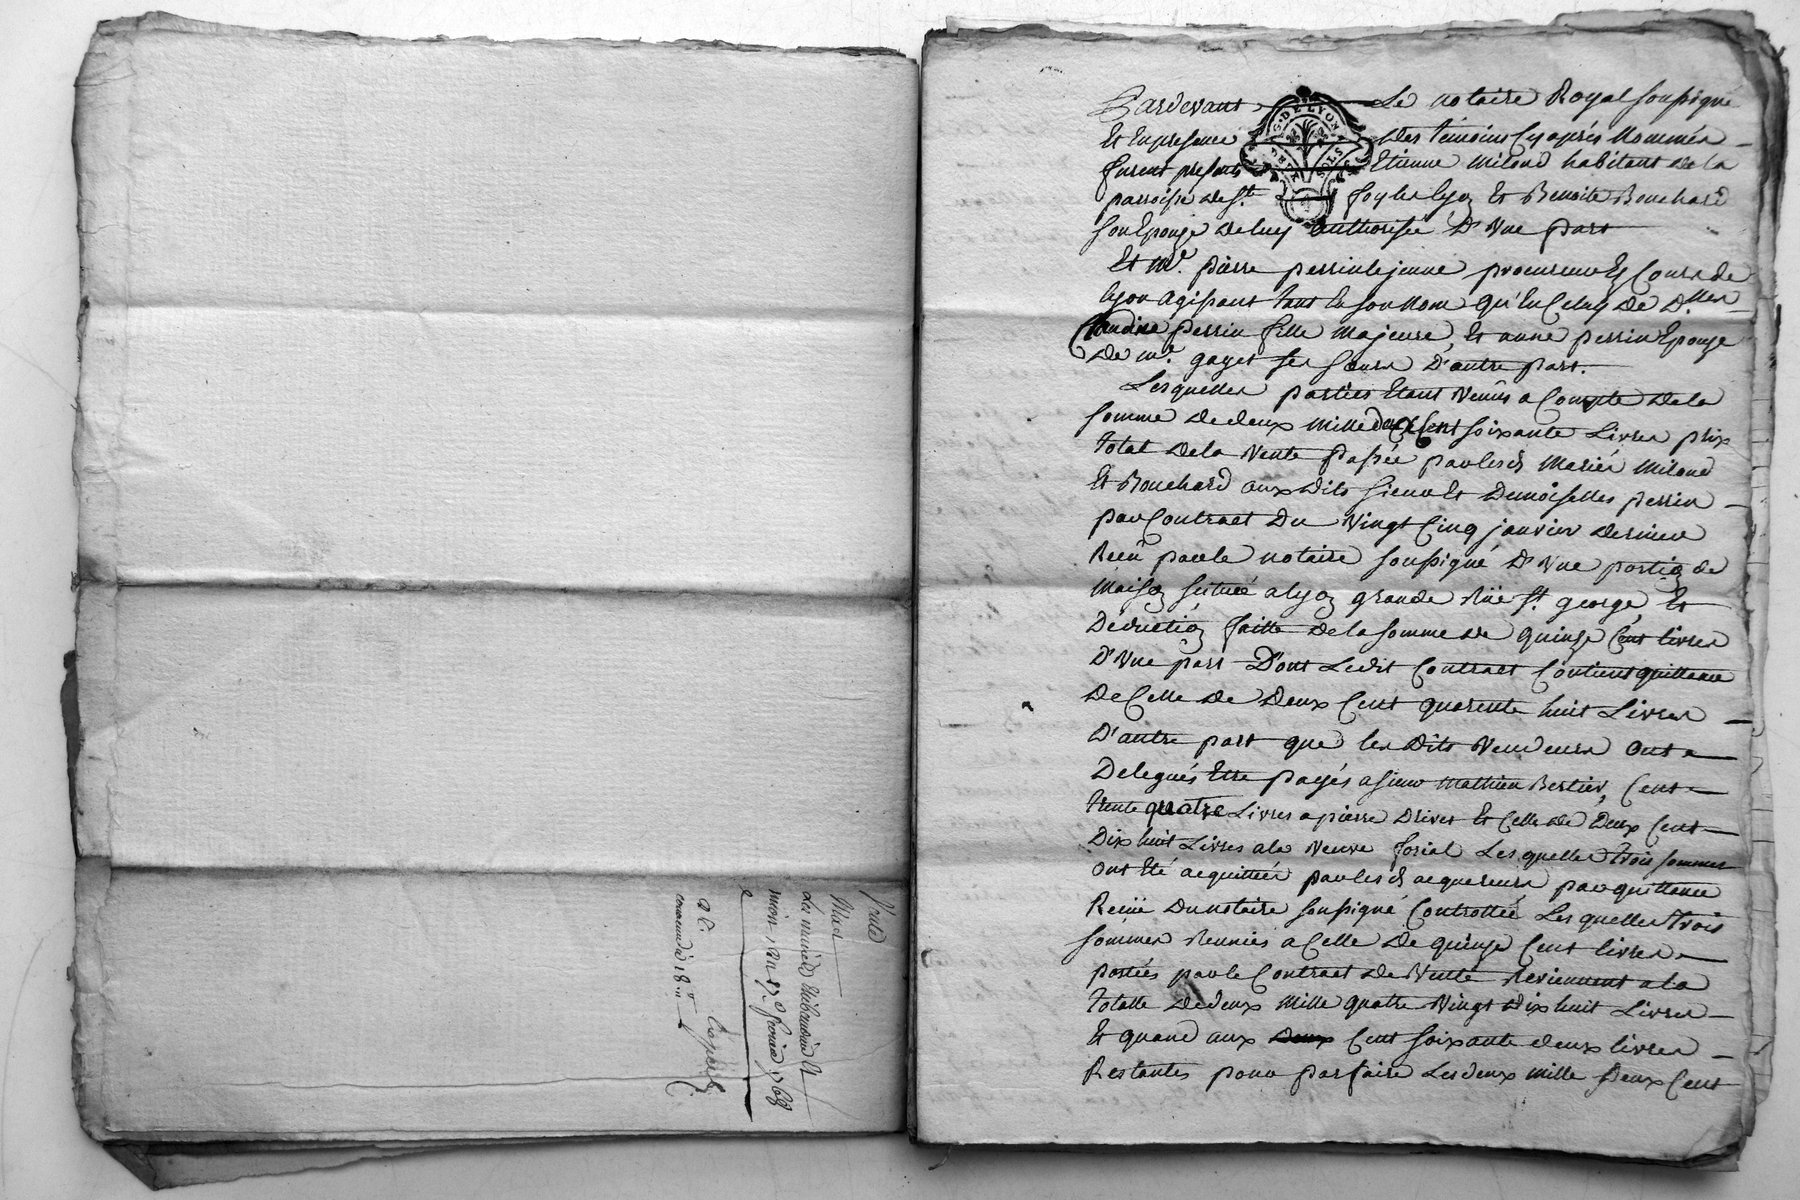 Vente
Les mariés thibaudin Et
mion du 17e fevrier 1768
Pardevant Le notaire Royal soussigné
G. DE LYON
SOLS
Et En presence des temoins Cy après Nommés
furent presents Etienne Milond habitant de la
parroisse de St. foy les lyon Et Benoite Bouchard
son Epouze de luy authorisée D'Une part
Et me. pierre perrin le jeune procureur Es Cours de
lyon agissant tant En son Nom qu'En Celuy de Dlles
Claudine perrin fille Majeure, Et anne perrin Epouze
de me. gayet ses sœurs D'autre part.
Lesquelles parties Etant Venües a Compte de la
somme de deux mille deux Cent soixante Livres prix
total de la Vente passée par lesd. Mariés Milond
Et Bouchard aux dits sieur Et Demoiselles perrin
par Contract du Vingt Cinq janvier dernier
Reçû par le notaire soussigné D'Une portion de
Maison scituée a lyon grande Rüe St. george, Et
Deduction faitte de la somme de quinze Cent livres
D'Une part Dont Ledit Contract Contient quittance
De Celle de Deux Cent quarente huit Livres
D'autre part que les dits Vendeurs ont
Delegués Etre payés a sieur Mathieu Bertier, Cent
trente quatre Livres a pierre Drivet Et Celle de Deux Cent
Dix huit Livres a la Veuve forial Lesquelles trois sommes
ont Eté acquittées par lesd. acquereurs par quittance
Reçüe Du notaire soussigné Controllée Lesquelles trois
sommes Reunies a Celle de quinze Cent livres
portées par le Contract de Vente Reviennent a la
totalle de deux mille quatre Vingt dix huit Livres
Et quand aux Cent soixante deux livres
Restantes pour parfaire Les deux mille Deux Cent